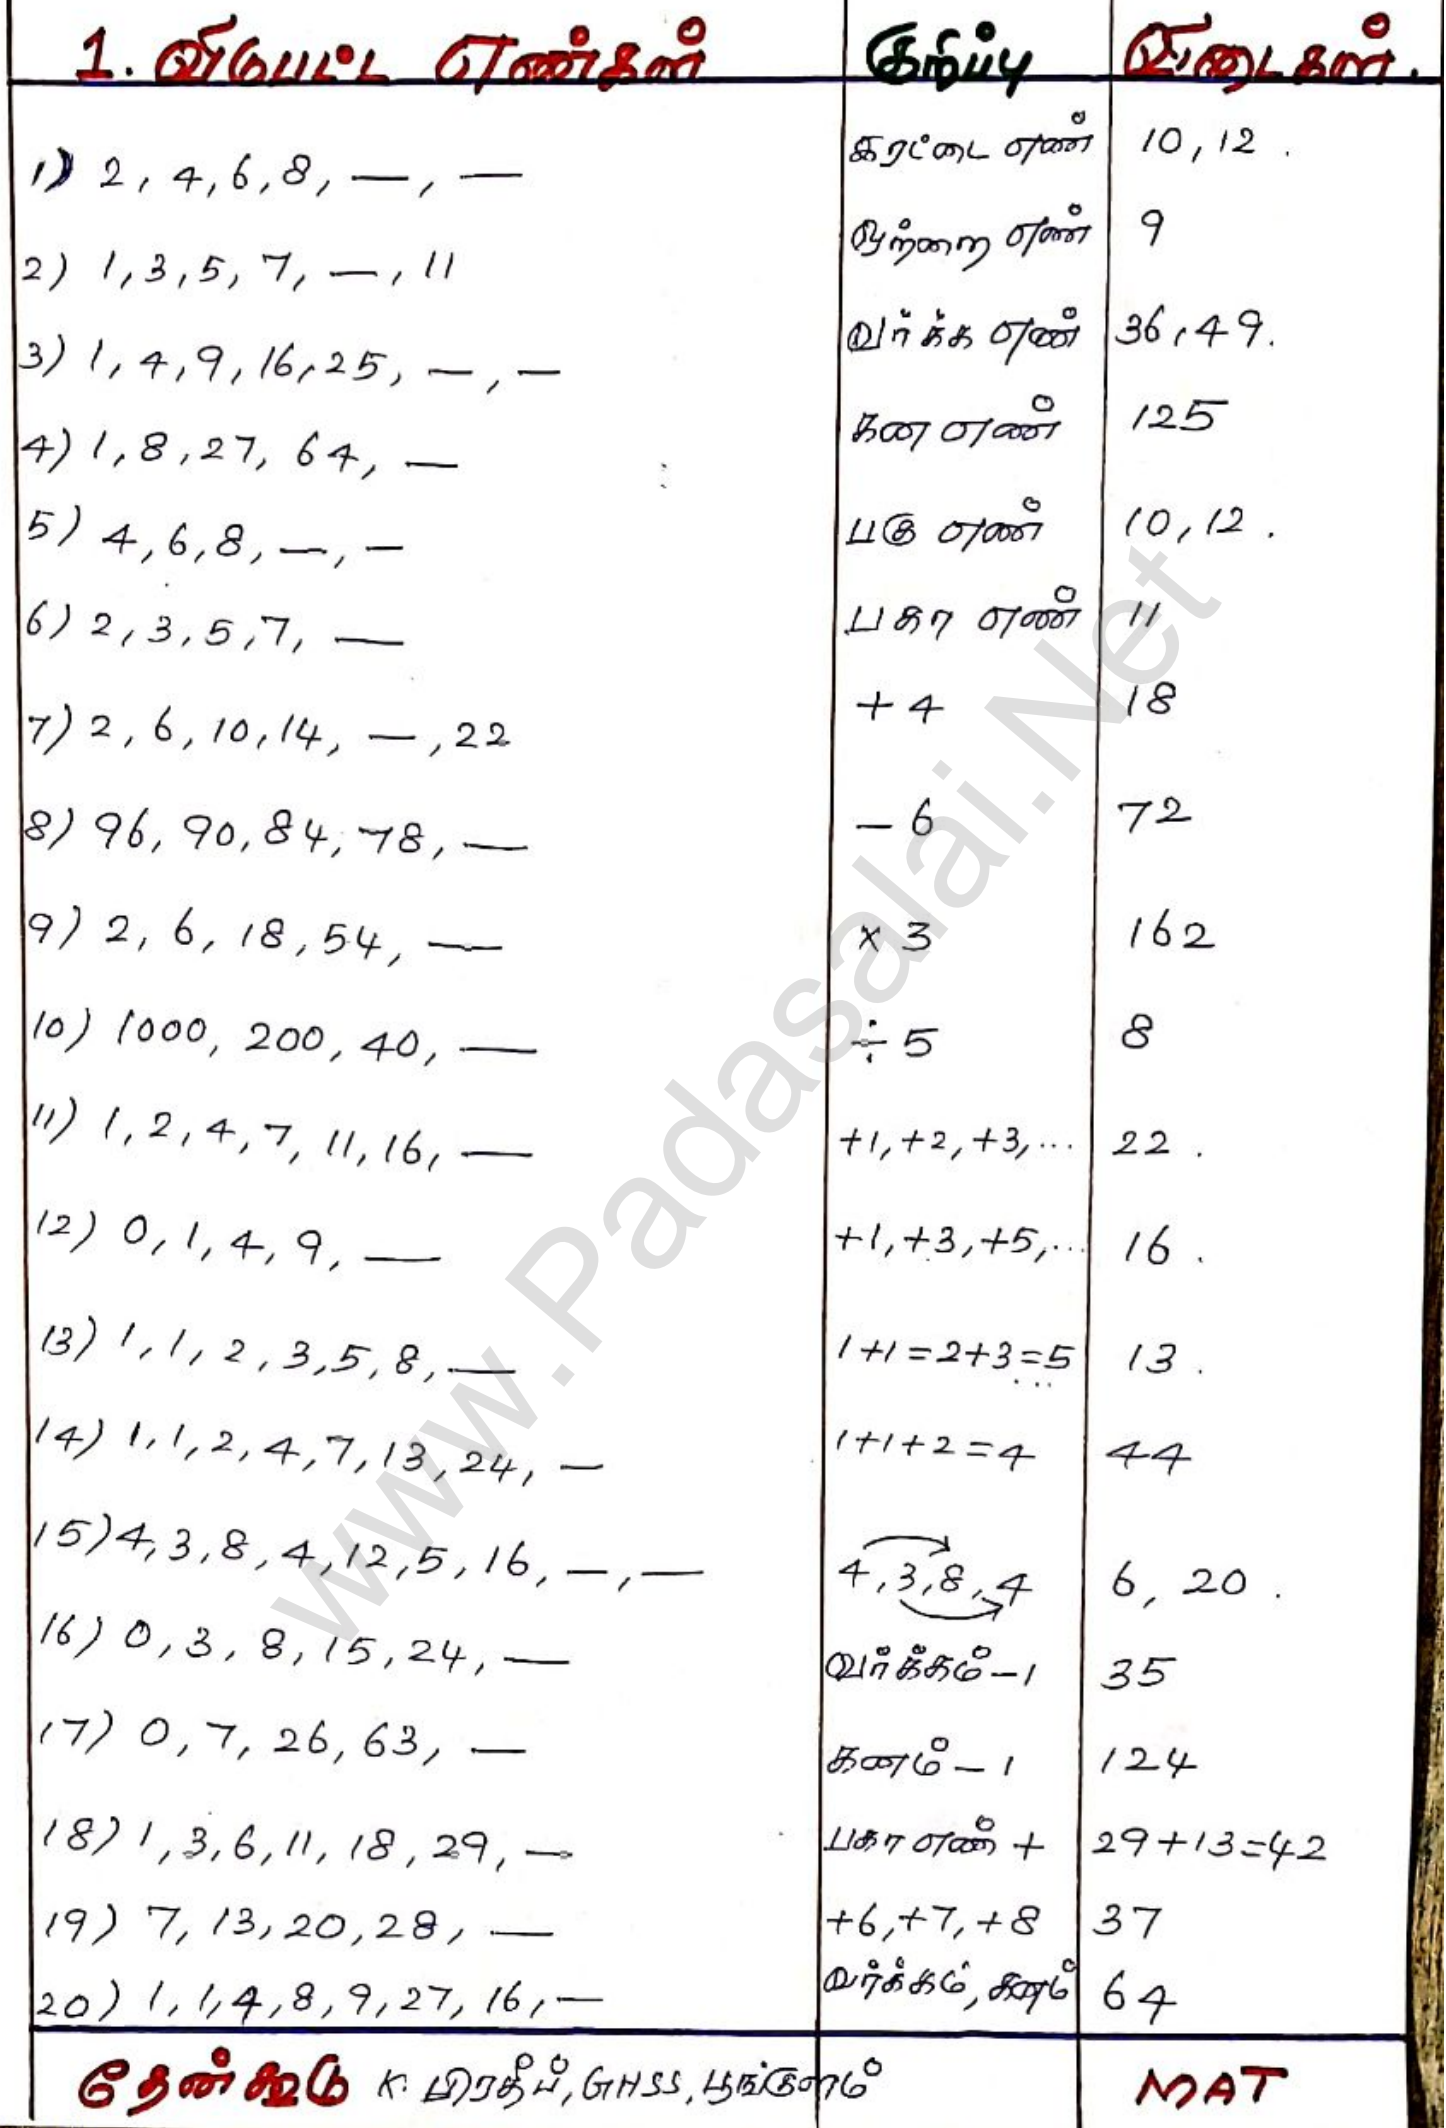 1. விடுபட்ட எண்கள் குறிப்பு விடைகள்.
1) 2, 4, 6, 8, —, — இரட்டை எண் 10, 12.
2) 1, 3, 5, 7, —, 11 ஒற்றை எண் 9
3) 1, 4, 9, 16, 25, —, — வர்க்க எண் 36, 49.
4) 1, 8, 27, 64, — கன எண் 125
5) 4, 6, 8, —, — பகு எண் 10, 12.
6) 2, 3, 5, 7, — பகா எண் 11
7) 2, 6, 10, 14, —, 22 +4 18
8) 96, 90, 84, 78, — – 6 72
9) 2, 6, 18, 54, — × 3 162
10) 1000, 200, 40, — ÷ 5 8
11) 1, 2, 4, 7, 11, 16, — +1, +2, +3, ... 22.
12) 0, 1, 4, 9, — +1, +3, +5, ... 16.
13) 1, 1, 2, 3, 5, 8, — 1+1=2+3=5 ... 13.
14) 1, 1, 2, 4, 7, 13, 24, — 1+1+2=4 44
15) 4, 3, 8, 4, 12, 5, 16, —, — 4, 3, 8, 4 6, 20.
16) 0, 3, 8, 15, 24, — வர்க்கம் – 1 35
17) 0, 7, 26, 63, — கனம் – 1 124
18) 1, 3, 6, 11, 18, 29, — பகா எண் + 29+13=42
19) 7, 13, 20, 28, — +6, +7, +8 37
20) 1, 1, 4, 8, 9, 27, 16, — வர்க்கம், கனம் 64
தேன்கூடு K. பிரதீப், GHSS, பூங்குளம் MAT
www.Padasalai.Net